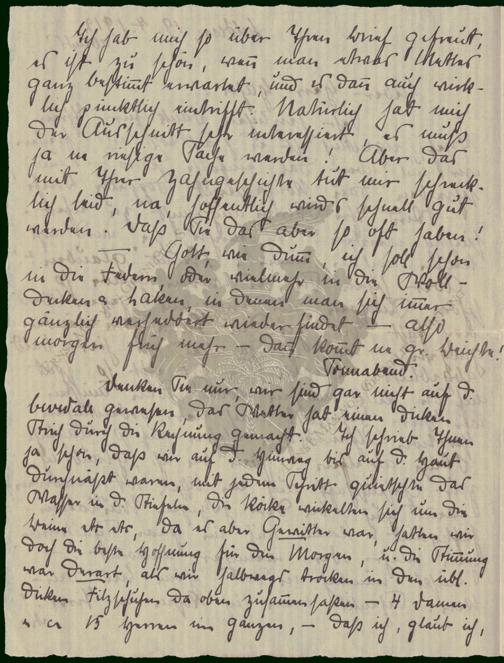 Ich hab mich so über Ihren Brief gefreut,
es ist zu schön, wenn man etwas Nettes
ganz bestimmt erwartet, und es dann auch wirk-
lich pünktlich eintrifft. Natürlich hat mich
der Ausschnitt sehr interessiert es muß
ja ne riesige Sache werden! Aber das
mit Ihrer Zahngeschichte tut mir schreck-
lich leid, na, hoffentlich wird's schnell gut
werden. Daß Sie das aber so oft haben!
Gott wie dumm, ich soll schon
in die Federn, oder vielmehr in die Woll-
decken & Laken, in denen man sich immer
gänzlich wieder findet – also
morgen früh mehr – dann kommt ne gr. Beichte!
Sonnabend.
Denken Sie nur, wir sind gar nicht auf d.
gewesen, das Wetter hat einen dicken
Strich durch die Rechnung gemacht. Ich schrieb Ihnen
ja schon, daß wir auf d. Hinweg bis auf d. Haut
durchnäßt waren, mit jedem Schritt quietschte das
Wasser in d. Stiefeln, die Röcke wickelten sich um die
Beine etc etc, da es aber Gewitter war, hatten wir
doch die beste Hoffnung für den Morgen, u. die Stimmung
war derart, als wir halbwegs trocken in den übl.
dicken Filzschuhen da oben zusammensaßen – 4 Damen
u ca 15 Herren im ganzen, – daß ich, glaub ich,